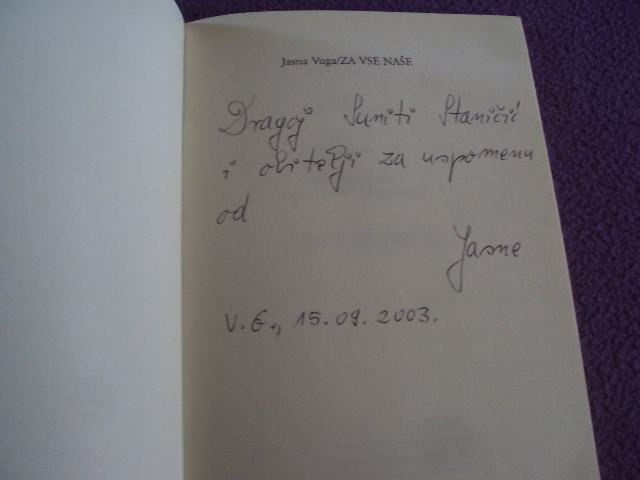 Jasna Vuga/ZA VSE NAŠE
Dragoj Suniti Staničić
i obitelji za uspomenu
od
Jasne
V. G., 15.09.2003.